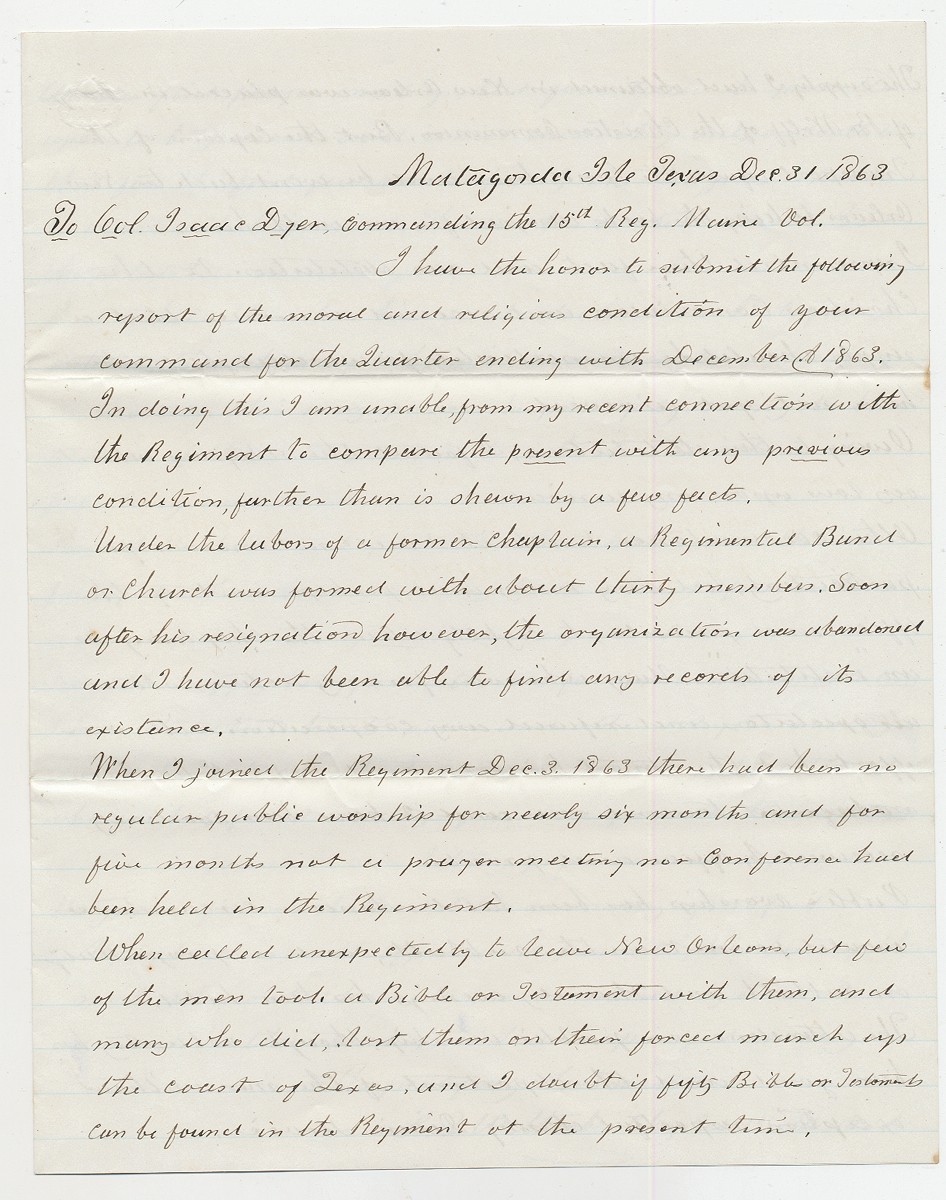 Matagorda Isle Texas Dec. 31 1863
To Col. Isaac Dyer, Commanding the 15th Reg. Maine Vol.
I have the honor to submit the following
report of the moral and religious condition of your
command for the Quarter ending with December 1863.
In doing this I am unable, from my recent connection with
the Regiment to compare the present with any previous
condition, further than is shewn by a few facts.
Under the labors of a former Chaplain, a Regimental Band
or Church was formed with about thirty members. Soon
after his resignation however, the organization was abandoned
and I have not been able to find any records of its
existence.
When I joined the Regiment Dec. 3. 1863 there had been no
regular public worship for nearly six months and for
five months not a prayer meeting nor Conference had
been held in the Regiment.
When called unexpectedly to leave New Orleans, but few
of the men took a Bible or Testament with them, and
many who did, lost them on their forced march up
the coast of Texas, and I doubt if fifty Bibles or Testaments
can be found in the Regiment at the present time.